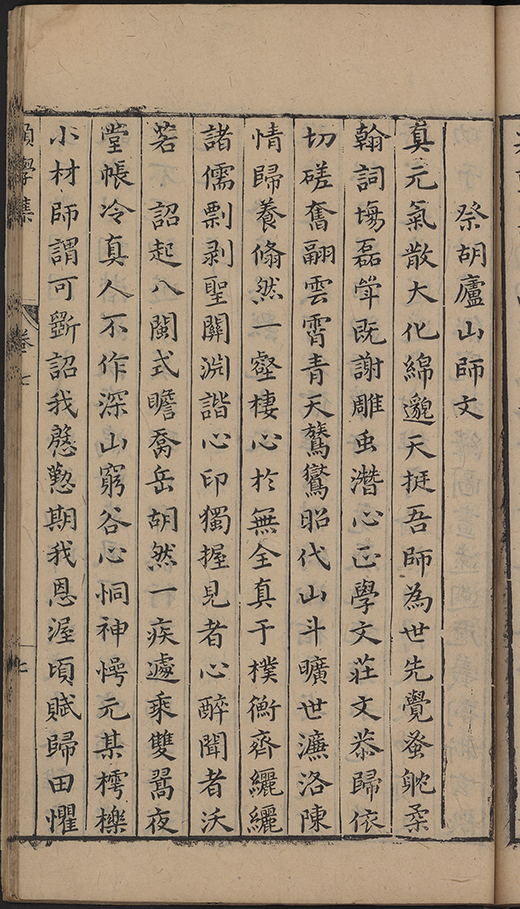 祭胡廬山師文
真元氣散大化綿邈天挺吾師為世先覺蚤躭柔
翰詞塲磊犖既謝雕虫潛心正學文莊文恭歸依
切磋奮翮雲霄青天鷟鸑昭代山斗曠世濂洛陳
情歸養翛然一壑棲心於無全真于樸衡齊纚纚
諸儒剽剥聖關淵諧心印獨握見者心醉聞者沃
若 詔起八閩式瞻喬岳胡然一疾遽乘雙翯夜
堂帳冷真人不作深山窮谷心恫神愕元某樗櫟
小材師謂可斵詔我慇懃期我恩渥頃賦歸田懼
願學集 卷七